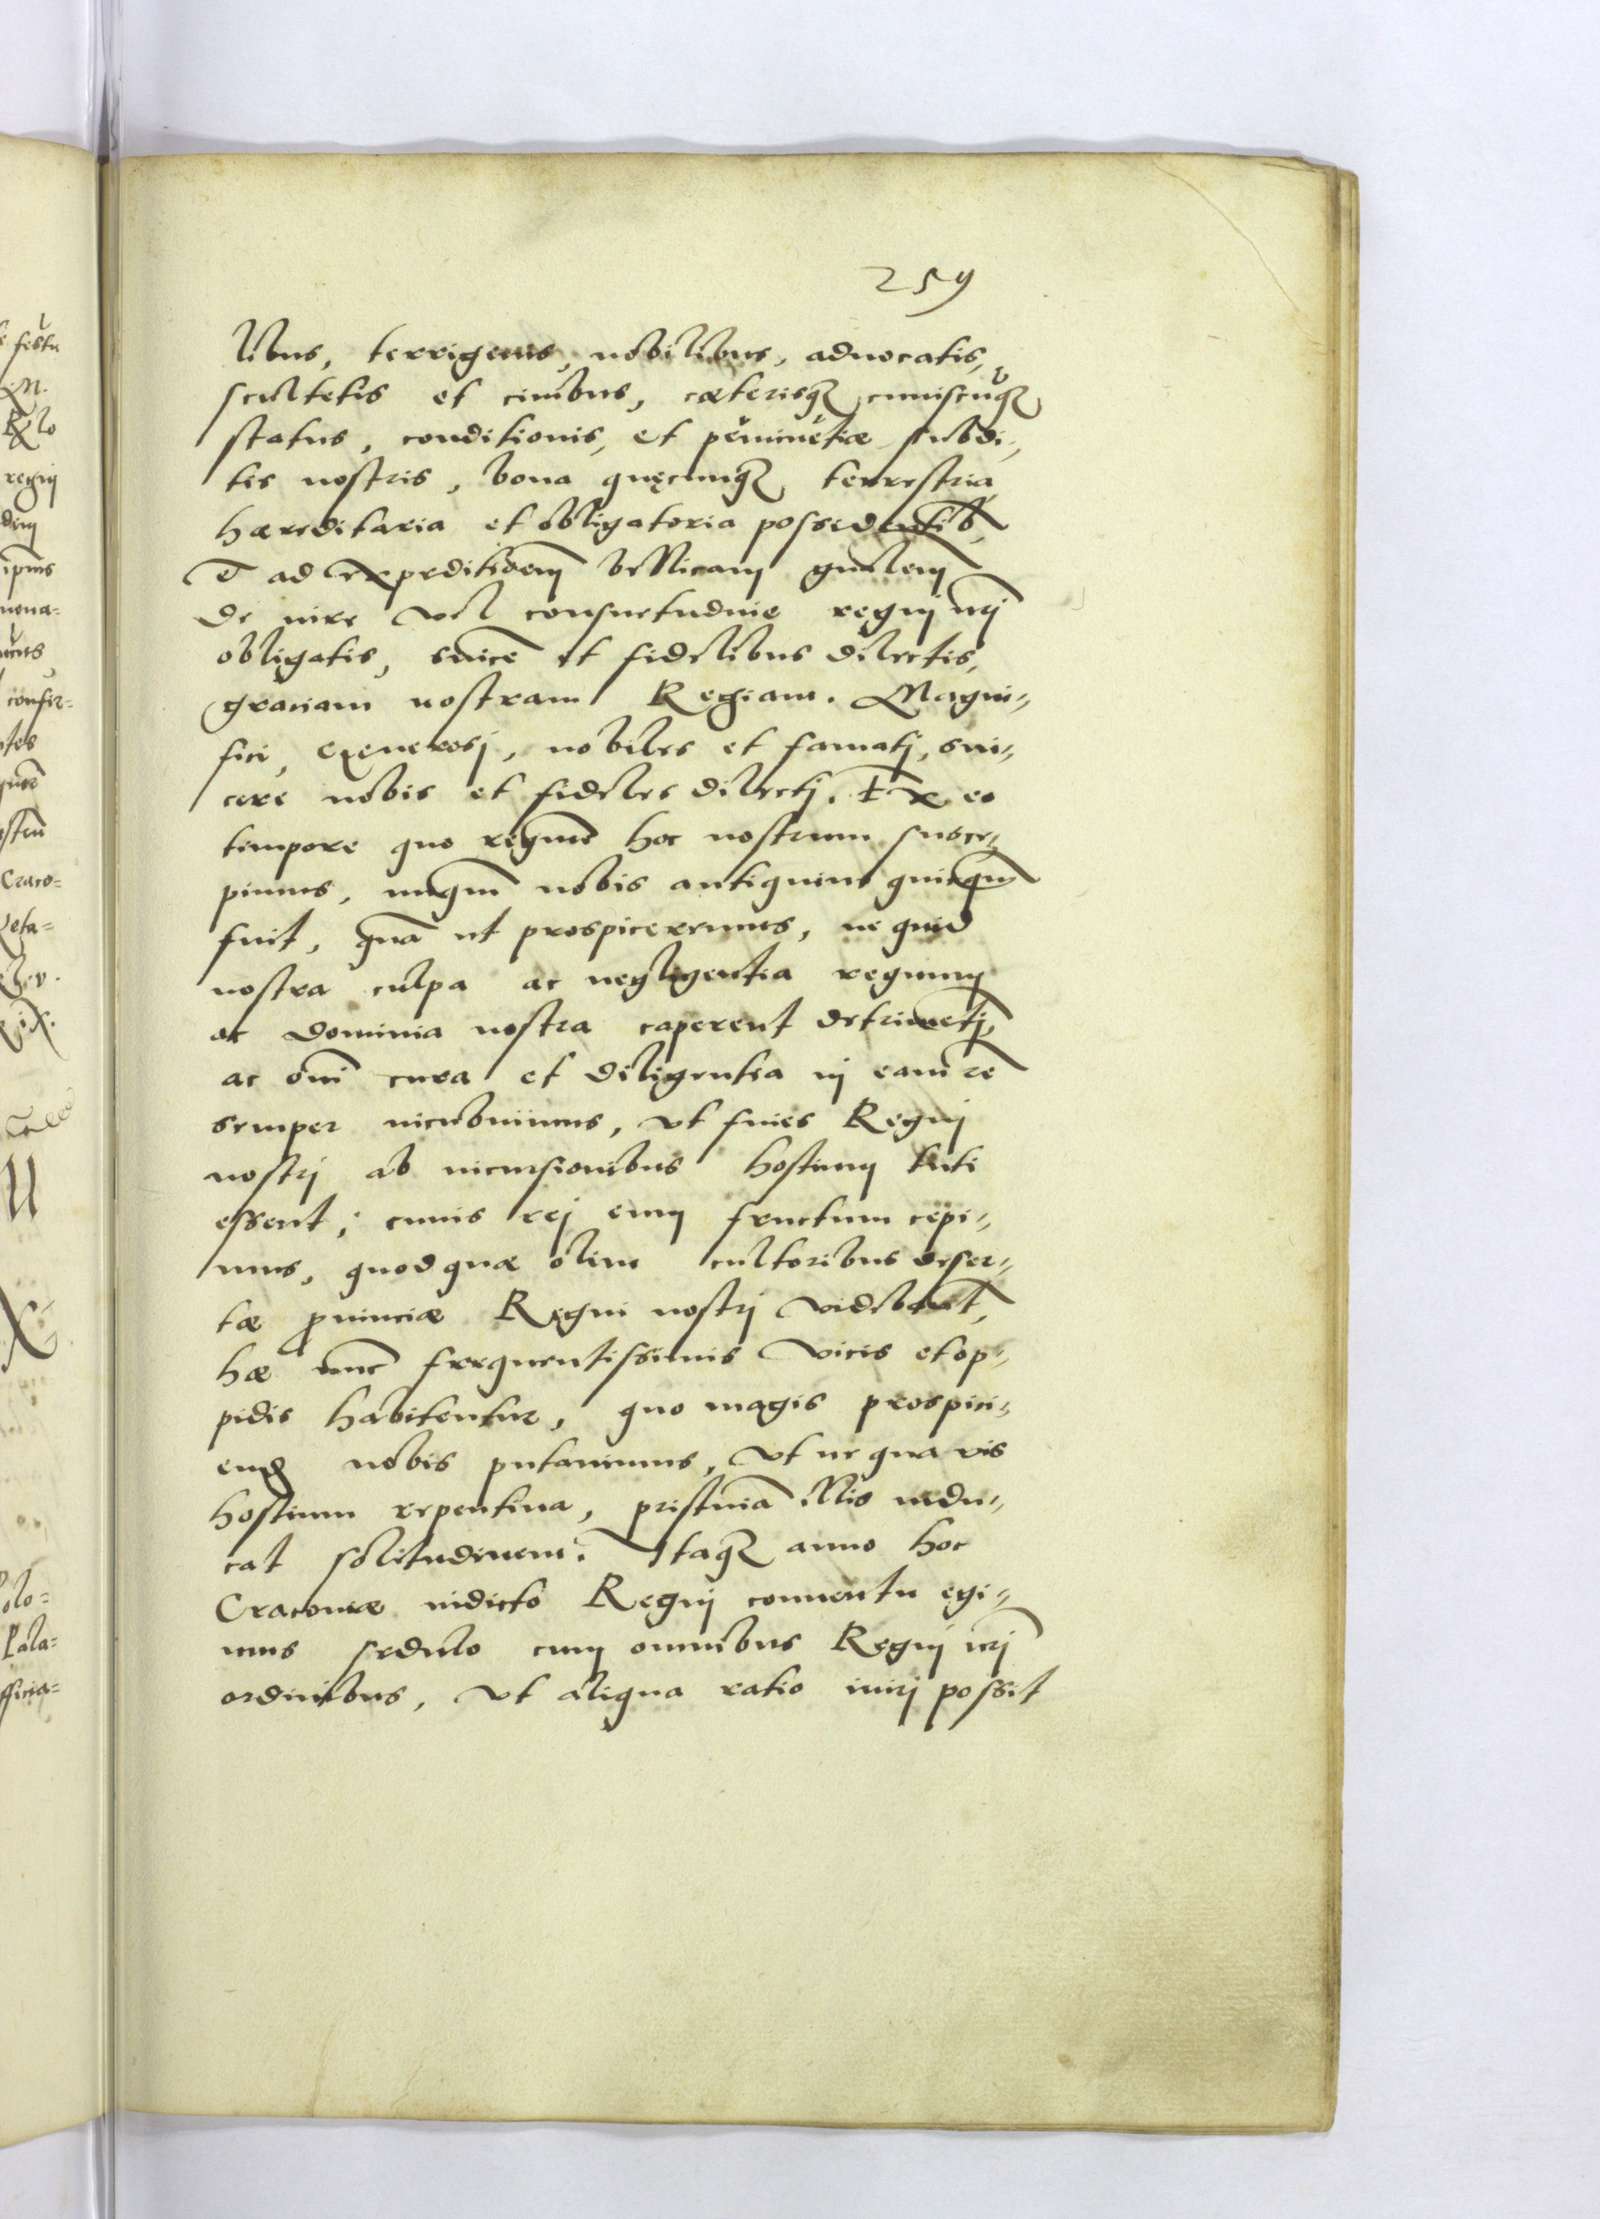 259
libus, terrigenis, nobilibus, aduocatis,
scultetis et ciuibus, cæterisq3 cuiuscũq3
status, conditionis, et pẽminẽtiæ subdi„
tis nostris, bona quęcunq3 terrestria
hæreditaria et obligatoria possidentib9,
et ad expeditioem bellicam gnalem
de iure vel consuetudine regnj nrj
obligatis, sincē et fidelibus dilectis,
gratiam nostram Regiam. Magni„
fici, Generosj, nobiles et famatj, sin„
cere nobis et fideles dilectj. Ex eo
tempore quo regimē hoc nostrum susce„
pimus, nuqm̄ nobis antiquius quicqm̄
fuit, quā ut prospiceremus, ne quid
nostra culpa ac negligentia regnum
ac dominia nostra caperent detrimẽtj,
ac om̄i cura et diligentia in eam rē
semper incubuimus, vt fines Regnj
nostrj ab incursionibus hostium tuti
essent; cuius rej eum fructum cepi„
mus, quod quæ olim cultoribus deser„
tæ prouinciæ Regni nostrj videbant,
hæ nunc frequentissimis vicis et op„
pidis habitentur, quo magis prospici„
end nobis putauimus, vt ne qua vis
hostium repentina, pristinā illis indu„
cat solitudinem. Itaq3 anno hoc
Cracouiæ indicto Regnj conuentu egi„
mus sedulo cum omnibus Regnj nrj
ordinibus, vt aliqua ratio inirj possit